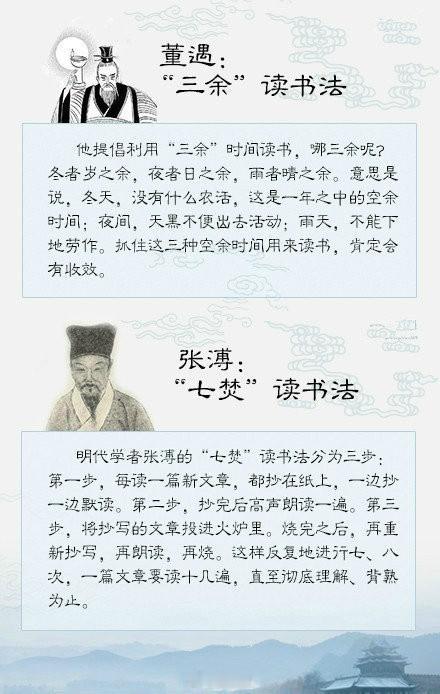 董遇：
“三余”读书法
他提倡利用“三余”时间读书，哪三余呢？
冬者岁之余，夜者日之余，雨者晴之余。意思是
说，冬天，没有什么农活，这是一年之中的空余
时间；夜间，天黑不便出去活动；雨天，不能下
地劳作。抓住这三种空余时间用来读书，肯定会
有收效。
张溥：
“七焚”读书法
明代学者张溥的“七焚”读书法分为三步：
第一步，每读一篇新文章，都抄在纸上，一边抄
一边默读。第二步，抄完后高声朗读一遍。第三
步，将抄写的文章投进火炉里。烧完之后，再重
新抄写，再朗读，再烧。这样反复地进行七、八
次，一篇文章要读十几遍，直至彻底理解、背熟
为止。